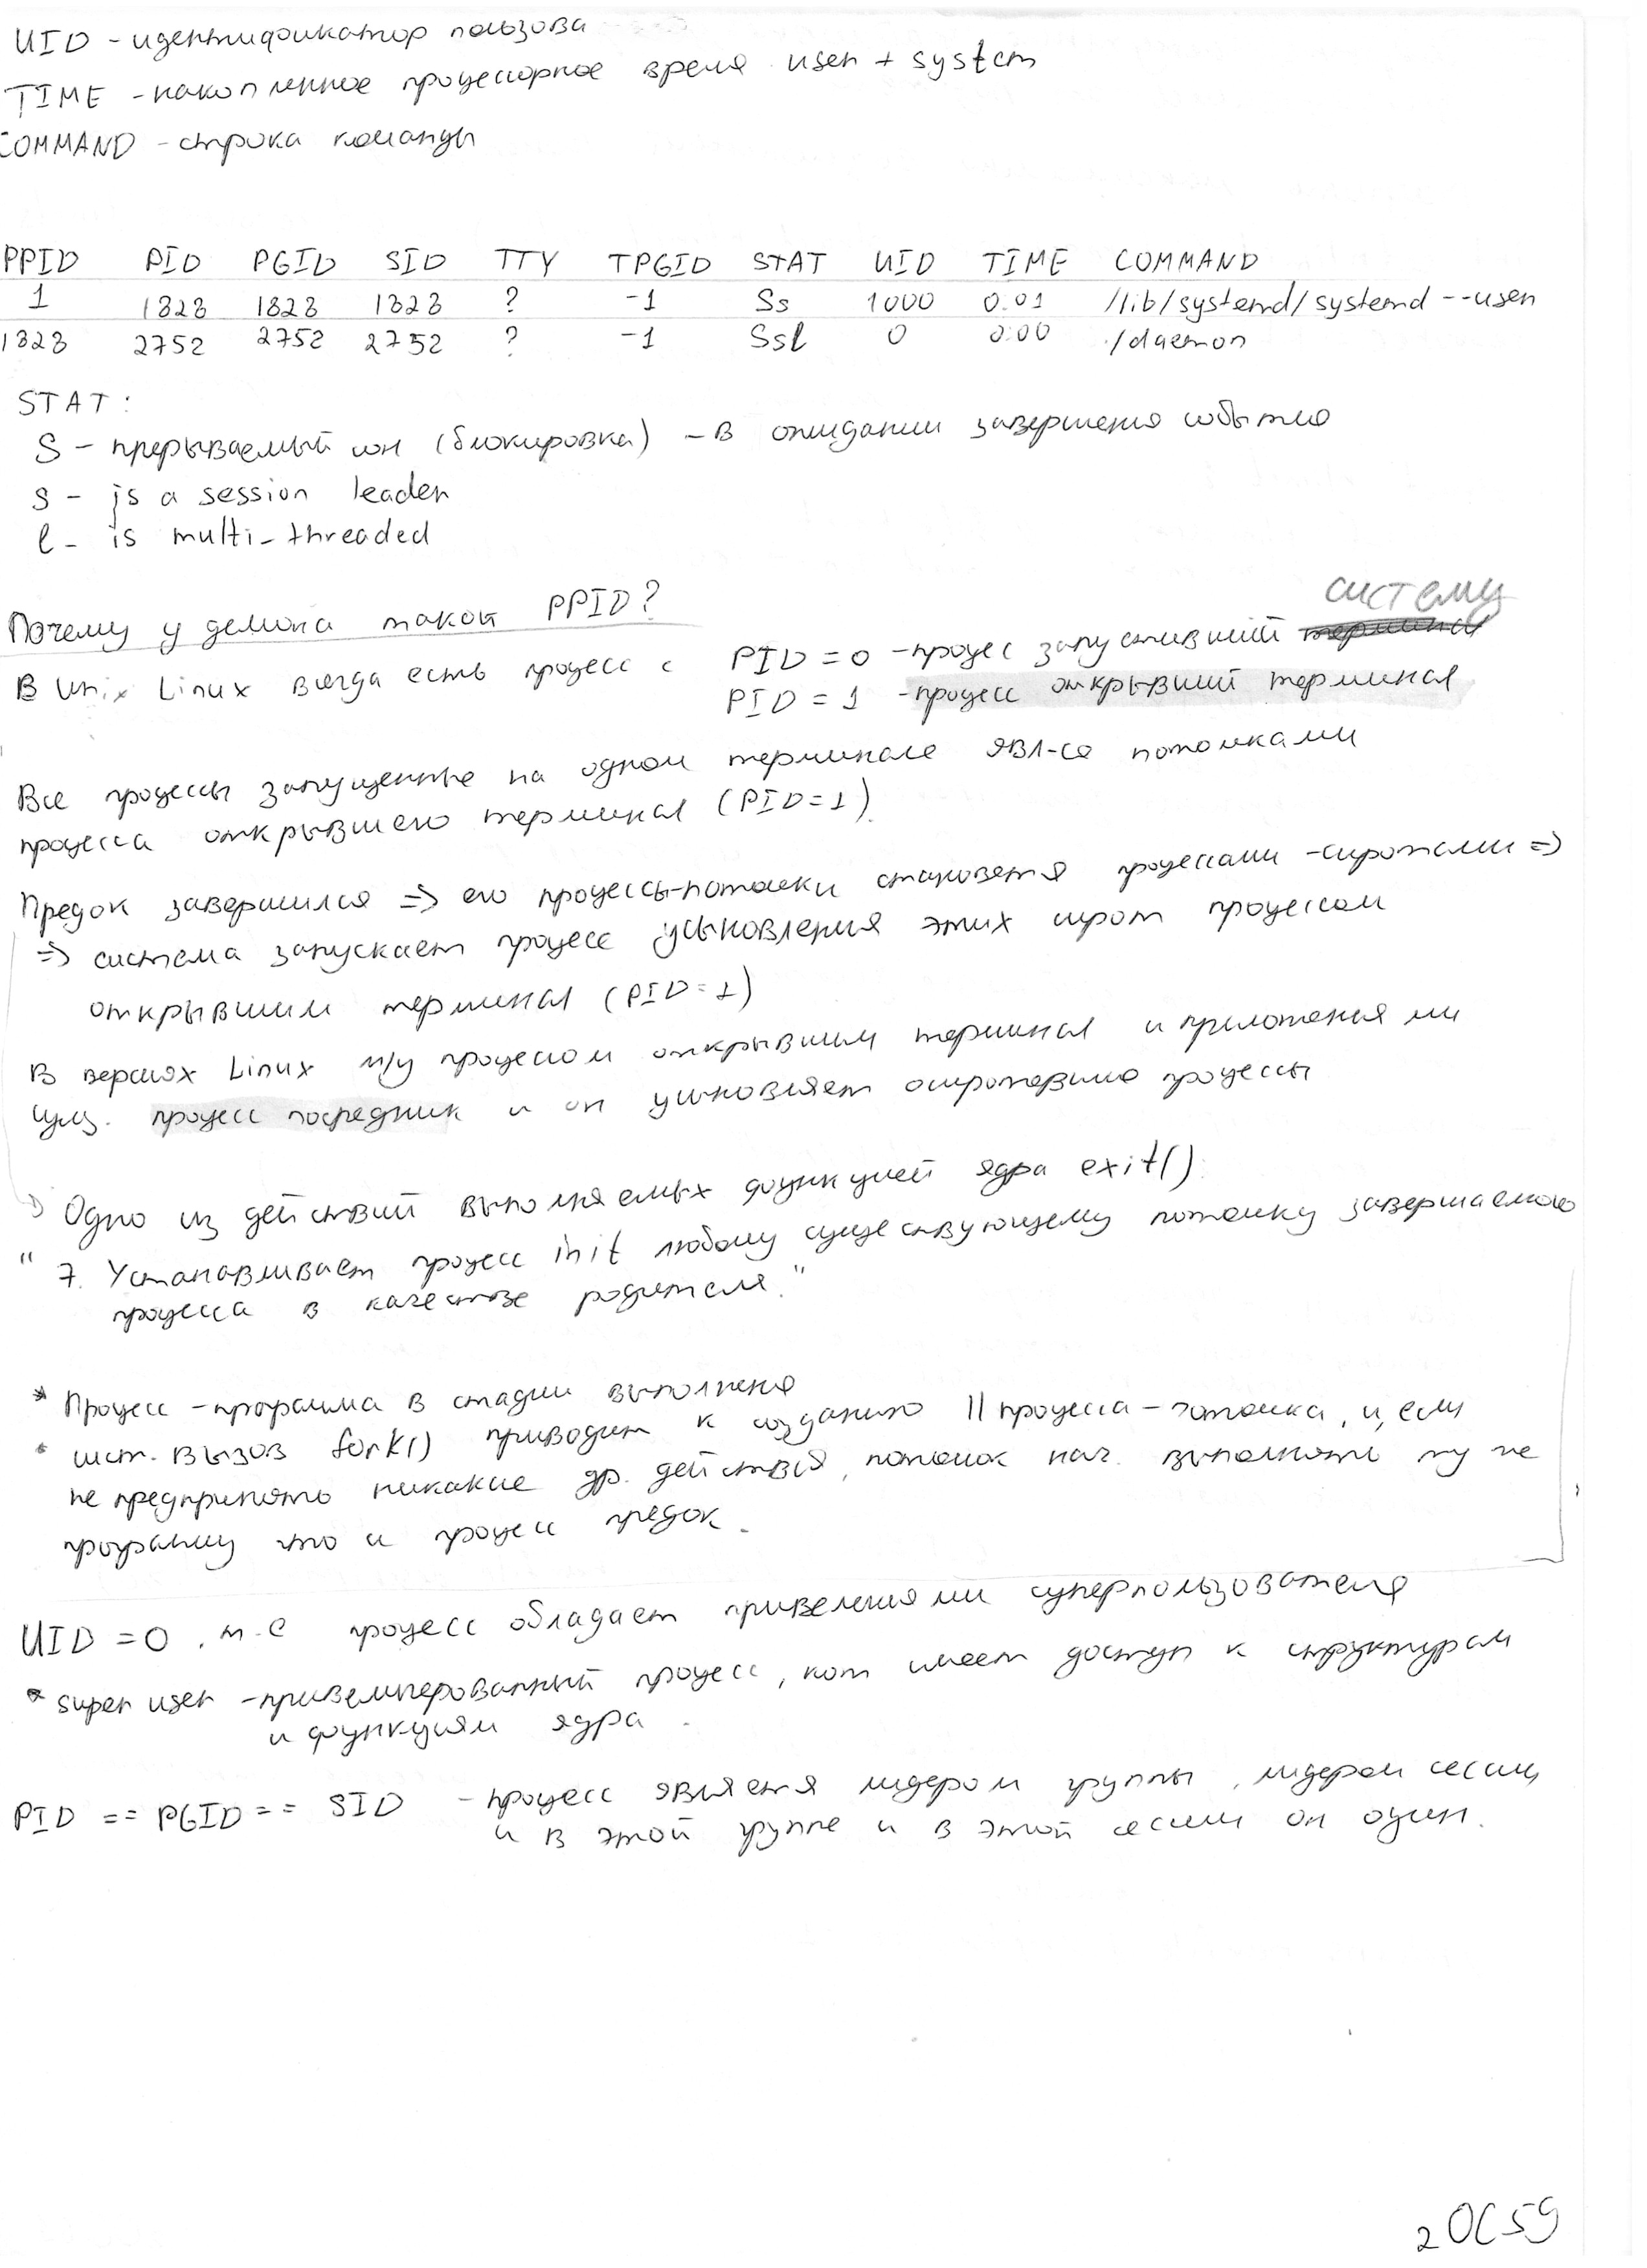 UID - идентификатор пользова
TIME - накопленное процессорное время user + system
COMMAND - строка команды
PPID PID PGID SID TTY TPGID STAT UID TIME COMMAND
1 1323 1323 1323 ? -1 Ss 1000 0.01 /lib/systemd/systemd --user
1323 2752 2752 2752 ? -1 Ssl 0 0:00 ./daemon
STAT:
S - прерываемый сон (блокировка) - в ожидании завершения события
s - is a session leader
l - is multi-threaded
Почему у демона такой PPID?
систему
В Unix Linux всегда есть процесс с PID = 0 - процес запустивший терминал
PID = 1 - процесс открывший терминал
Все процессы запущенные на одном терминале явл-ся потомками
процесса открывшего терминал (PID=1).
Предок завершился => его процессы-потомки становятся процессами-сиротами =>
=> система запускает процесс усыновления этих сирот процессом
открывшим терминал (PID=1)
В версиях Linux м/у процессом открывшим терминал и приложениями
сущ. процесс посредник и он усыновляет осиротевшие процессы
Одно из действий выполняемых функцией ядра exit()
" 7. Устанавливает процесс init любому существующему потомку завершаемого
процесса в качестве родителя."
* Процесс - программа в стадии выполнения
* сист. вызов fork() приводит к созданию || процесса - потомка, и, если
не предпринять никакие др. действия, потомок нач. выполнять ту же
программу что и процесс предок.
UID = 0, т.е процесс обладает привелениями суперпользователя
* super user - привелигерованный процесс, кот имеет доступ к структурам
и функциям ядра.
PID == PGID == SID - процесс является лидером группы, лидером сессии
и в этой группе и в этой сессии он один.
2 ОС 59